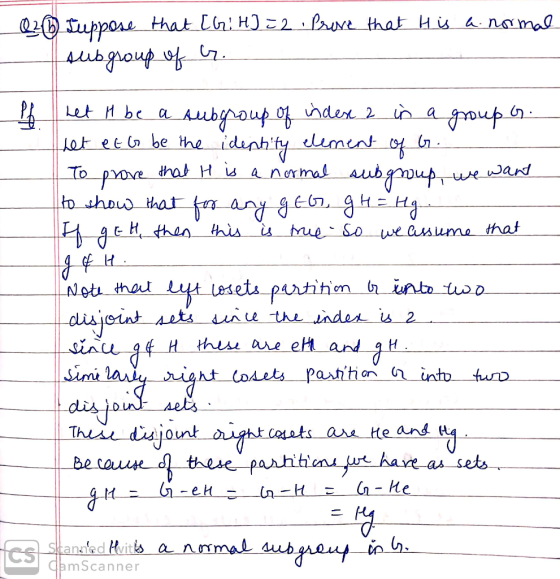 Q2(b) Suppose that [G:H]=2. Prove that H is a normal
subgroup of G.
Pf. Let H be a subgroup of index 2 in a group G.
Let e∈G be the identity element of G.
To prove that H is a normal subgroup, we want
to show that for any g∈G, gH = Hg.
If g∈H, then this is true. So we assume that
g ∉ H.
Note that left cosets partition G into two
disjoint sets since the index is 2.
Since g∉H these are eH and gH.
Similarly right cosets partition G into two
disjoint sets.
These disjoint right cosets are He and Hg.
Because of these partitions, we have as sets.
gH = G-eH = G-H = G-He
= Hg
∴ H is a normal subgroup in G.
CS Scanned with
CamScanner